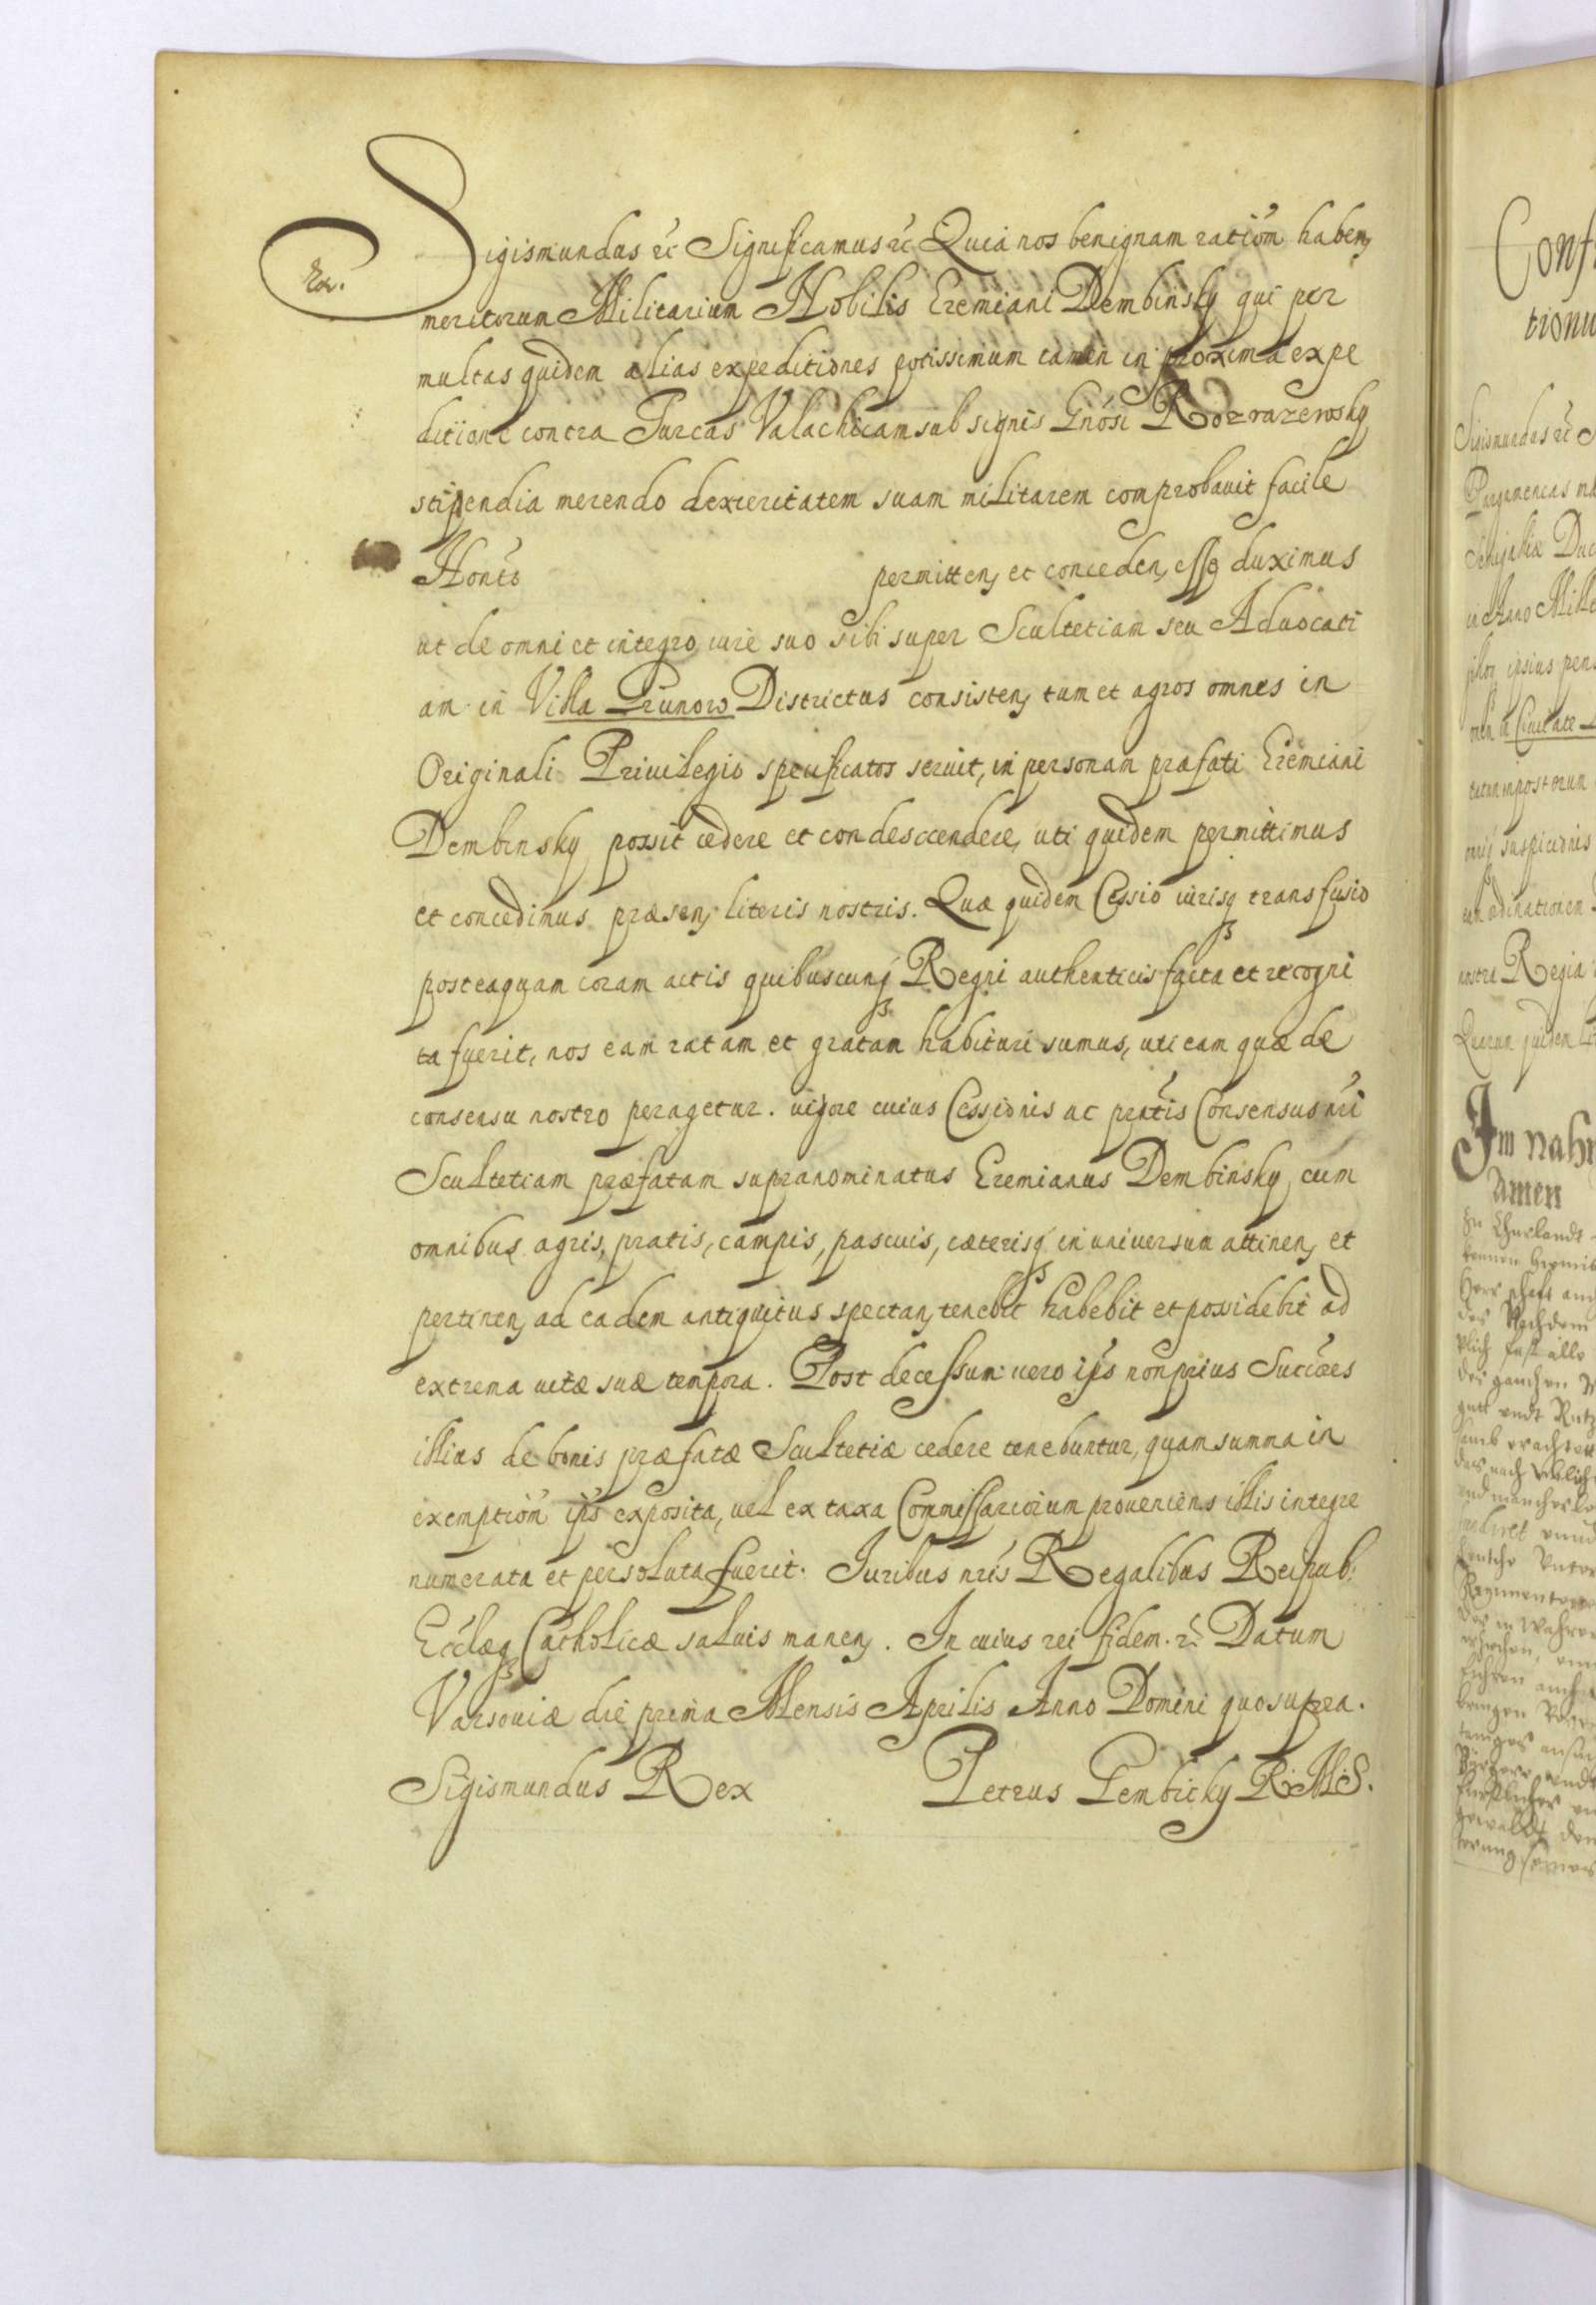 Sigismundus etc Significamus etc Quia nos benignam ratiōm haben,
Ex.
meritorum Militarium Nobilis Eremiani Dembinsky qui per
multas quidem alias expeditiones potissimum tamen in proxima expe
ditione contra Turcas Valachicam sub signis Gnōsi Rozrazewsky
stipendia merendo dexteritatem suam militarem comprobauit facile
Honēs permitten, et conceden, esse duximus
ut de omni et integro iure suo sibi super Scultetiam seu Aduocati
am in Villa Prunow Districtus consisten, tum et agros omnes in
Originali Priuilegio specificatos seruit, in personam præfati Eremiani
Dembinsky possit cedere et condescendere, uti quidem permittimus
et concedimus præsen, literis nostris. Quæ quidem Cessio iurisq transfusio
posteaquam coram actis quibuscunq Regni authenticis facta et recogni
ta fuerit, nos eam ratam et gratam habituri sumus, uti eam quæ de
consensu nostro peragetur. uigore cuius Cessionis ac pn̄tis Consensus nr̄i
Scultetiam præfatam supranominatus Eremianus Dembinsky cum
omnibus agris, pratis, campis, pascuis, cæterisq in uniuersum attinen, et
pertinen, ad eadem antiquitus spectan, tenebit habebit et possidebit ad
extrema uitæ suæ tempora. Post decessum uero ip̄s non prius Succ̄ores
illius de bonis præfatæ Scultetiæ cedere tenebuntur, quam summa in
exemptiōm ip̄s exposita, uel ex taxa Commissariorum proueniens illis integre
numerata et persoluta fuerit. Iuribus nr̄is Regalibus Reipub:
Ecclæq Catholicæ saluis manen,. In cuius rei fidem. etc Datum
Varsouiæ die prima Mensis Aprilis Anno Domini quo supra.
Sigismundus Rex Petrus Gembicky R. M. S.